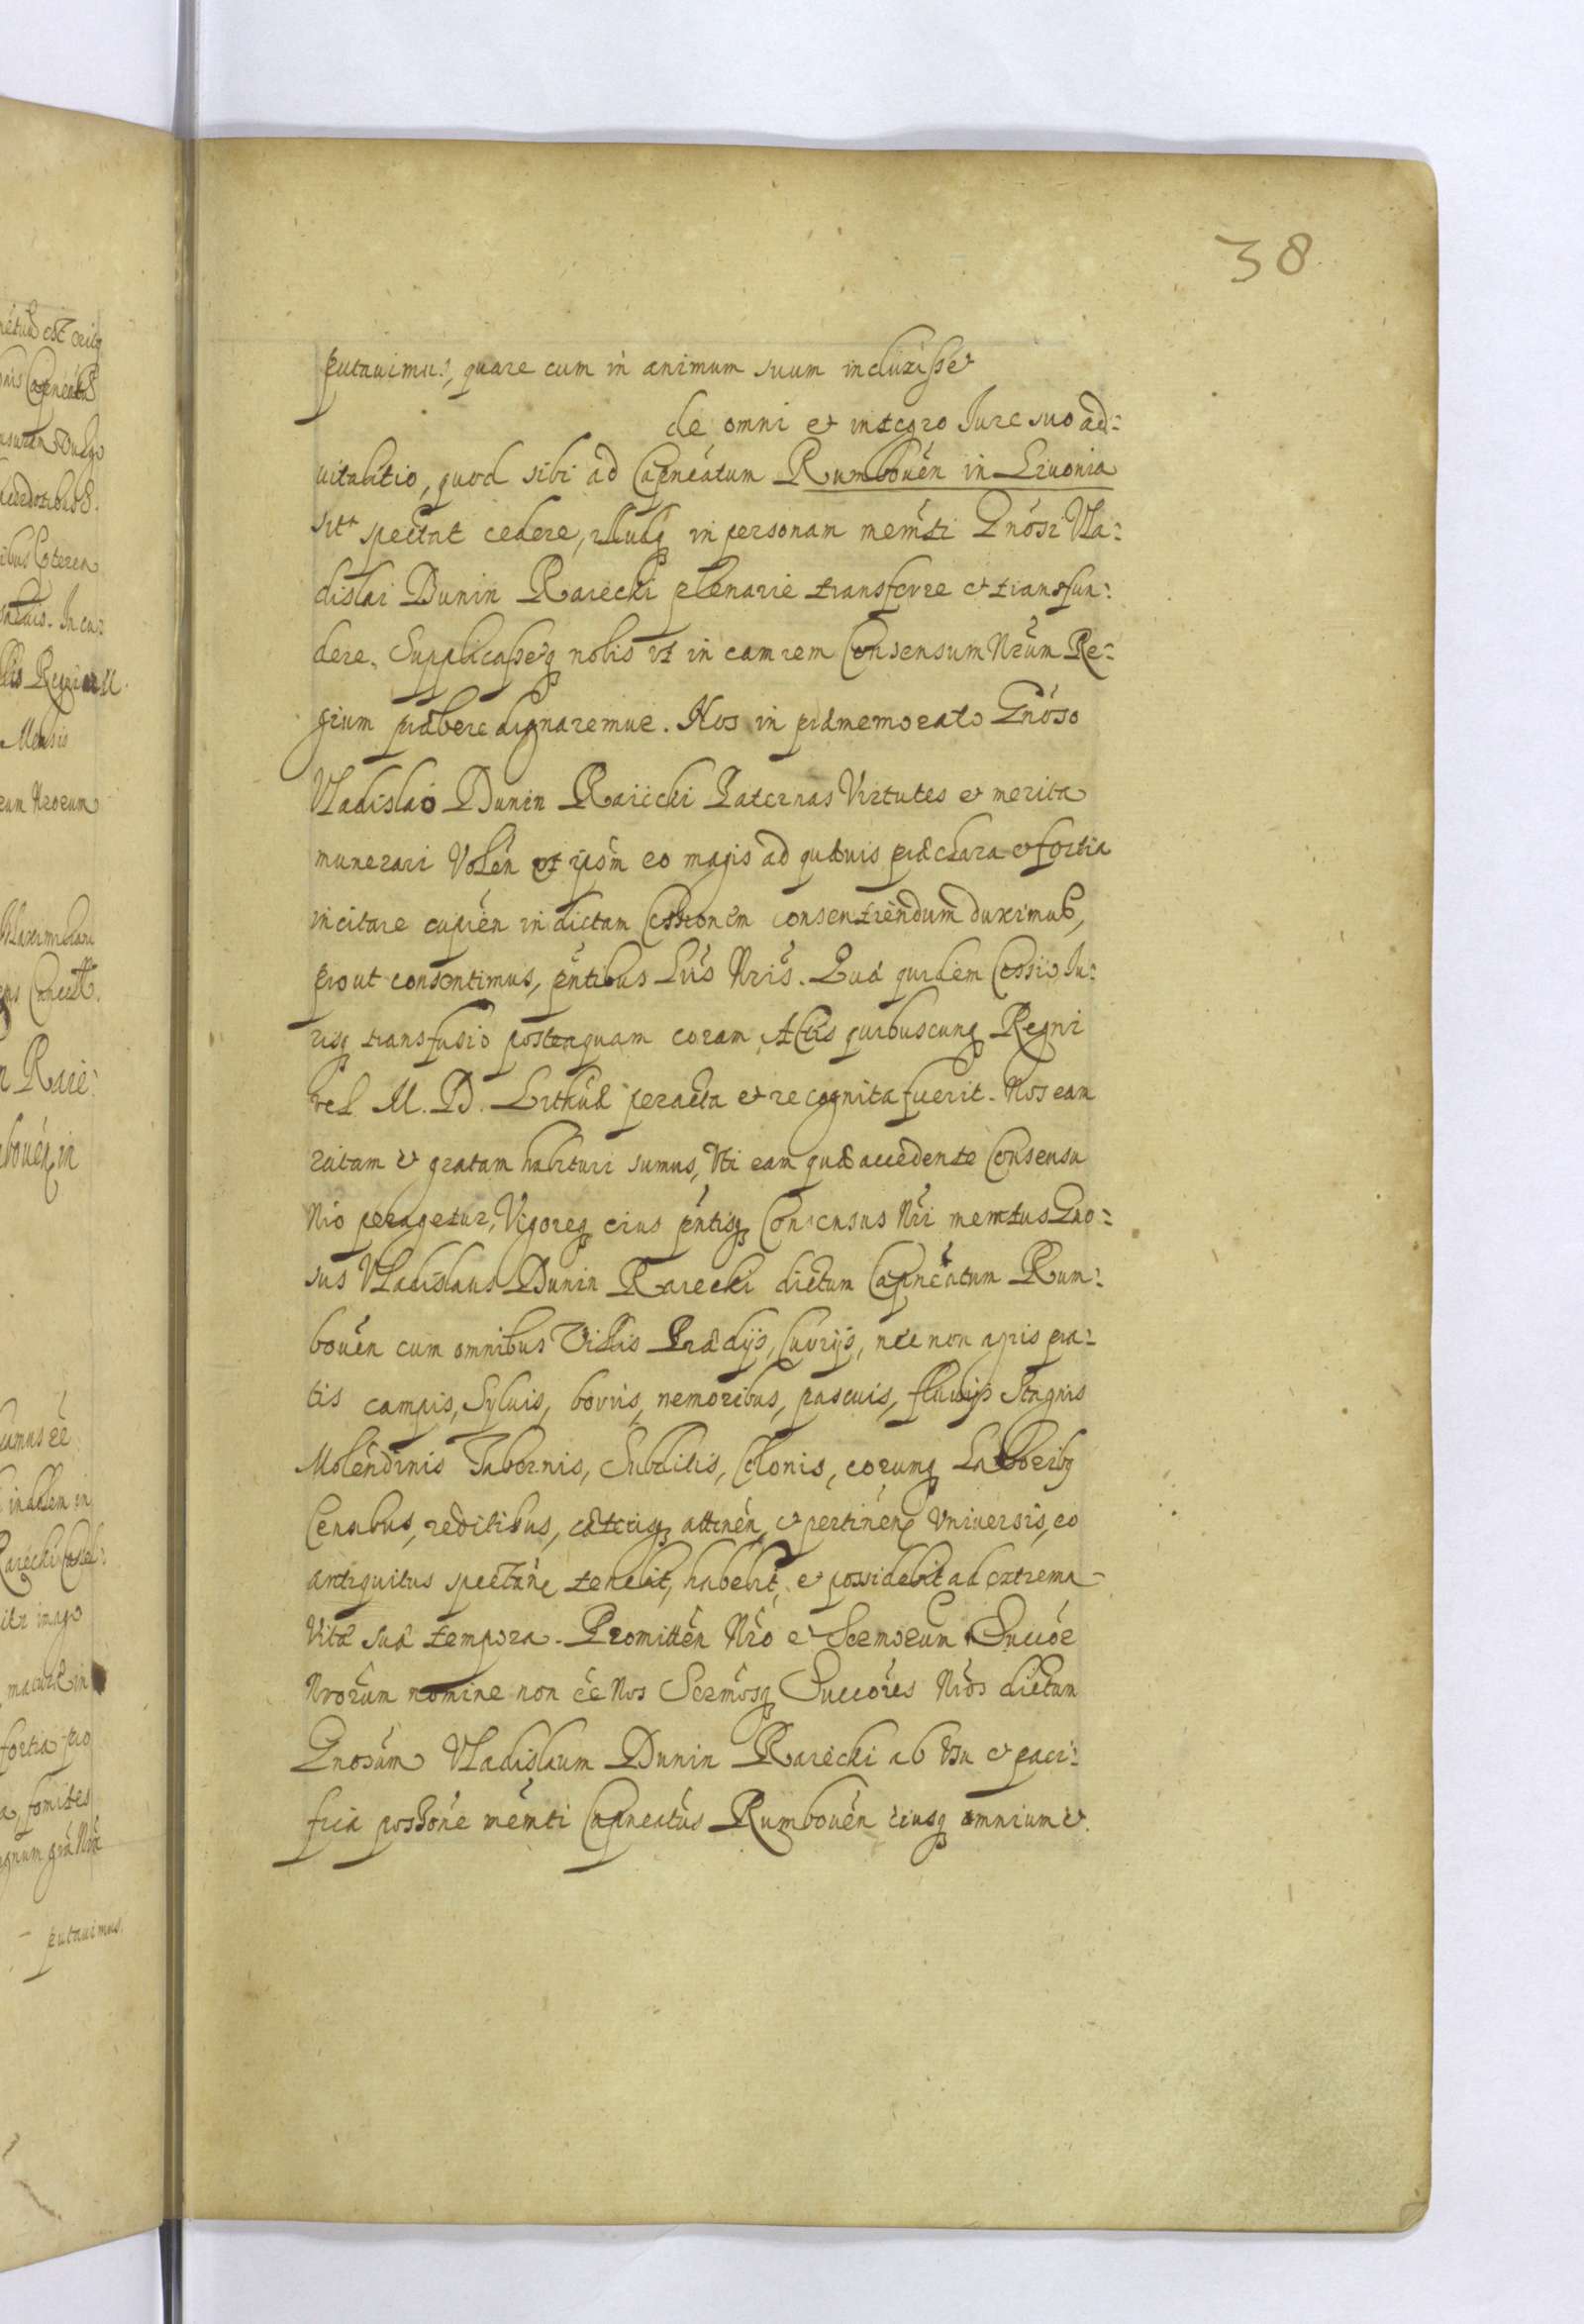 38
putauimus, quare cum in animum suum induxisset
de omni et integro Iure suo ad:
uitalitio, quod sibi ad Capneatum Rumbouen in Liuonia
spectat cedere, illudq in personam memti Gnosi Vla:
dislai Dunin Raiecki plenarie transferre et transfun:
dere, Supplicasseq nobis vt in eam rem Consensum Nrum Re:
gium præbere dignaremur. Nos in præmemorato Gnoso
Vladislao Dunin Raiecki Paternas Virtutes et merita
munerari Volen et ipsm eo magis ad quæuis præclara et fortia
incitare cupien in dictam Cessionem consentiendum duximus,
prout consentimus, pntibus Lris Nris. Quæ quidem Cessio Iu:
risq transfusio posteaquam coram Actis quibuscunq Regni
vel M. D. Lithuæ peracta et recognita fuerit. Nos eam
ratam et gratam habituri sumus, Vti eam quæ accedente Consensu
Nro peragetur, Vigoreq eius pntisq Consensus Nri memtus Gno:
sus Vladislaus Dunin Raiecki dictum Capneatum Rum:
bouen cum omnibus Villis Prædijs, Curijs, nec non agris pra:
tis campis, Syluis, borris, nemoribus, pascuis, fluuijs Stagnis
Molendinis Tabernis, Subditis, Colonis, eorunq Laboribq
Censibus, reditibus, cæterisq attinen, et pertinen Vniuersis, eo
antiquitus spectan tenebit, habebit, et possidebit ad extrema
Vitæ suæ tempora. Promitten Nro et Seremorum Succor
Nrorum nomine non ee Nos Seremosq Succores Nros dictum
Gnosum Vladislaum Dunin Raiecki ab Vsu et paci:
fica possone memti Capneatus Rumbouen eiusq omnium et